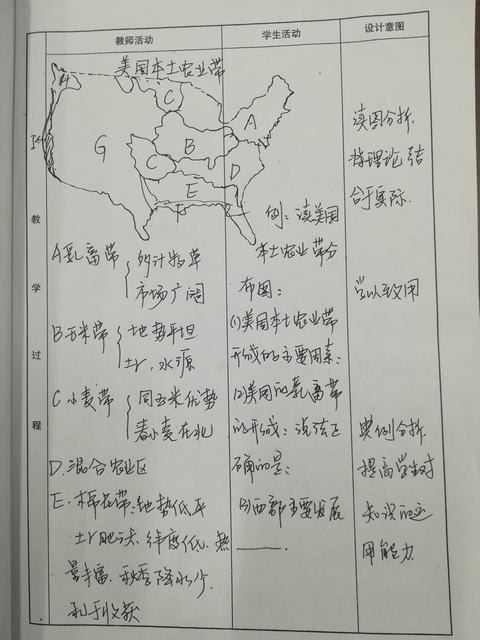 教师活动
学生活动
设计意图
美国本土农业带
H
C
A
B
G
C
D
E
I
F
教学过程
A乳畜带
市场广阔
B玉米带
地势平坦
土r,水源
C小麦带
同玉米优势
春小麦在北
D.混合农业区
E.棉花带:地势低平
土r肥沃.纬度低.热
量丰富.秋季降水少.
利于收获
例:读美国
本土农业带分
布图:
(1)美国本土农业带
形成的主要因素:
(2)美国的乳畜带
的形成:说法正
确的是:
(3)西部主要发展
读图分析.
将理论结
合于实际.
学以致用
典例分析.
提高学生对
知识的运
用能力.